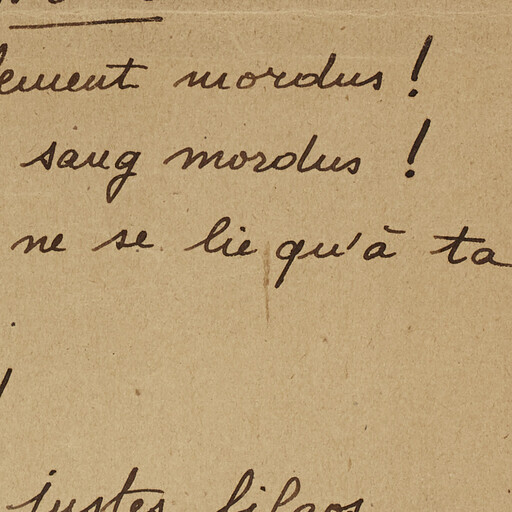 lement mordus !
sang mordus !
ne se lie qu'à ta
justes filaos